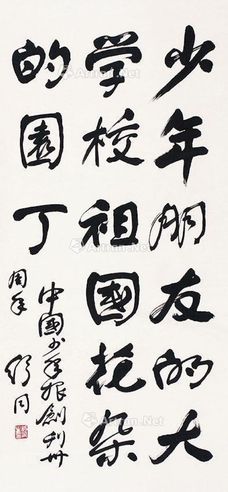 少年朋友的大
学校祖國花朵
的園丁
中國少年报創刊卅
周年
舒同
Artron.Net